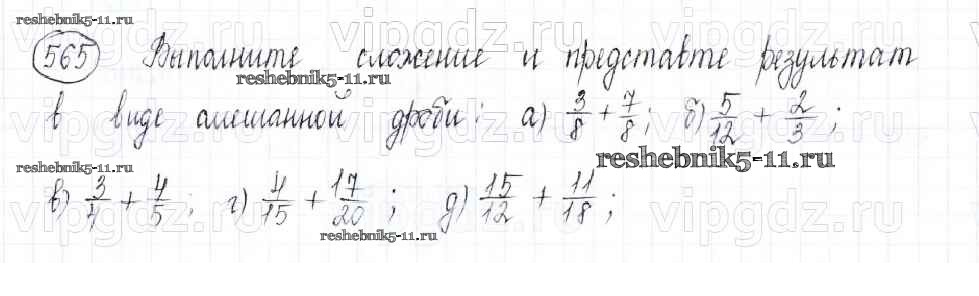 reshebnik5-11.ru
vipgdz.ru vipgdz.ru vipgdz.ru
565 Выполните сложение и представьте результат
reshebnik5-11.ru
в виде смешанной дроби: а) 3/8 + 7/8; б) 5/12 + 2/3;
reshebnik5-11.ru
vipgdz.ru vipgdz.ru vipgdz.ru
reshebnik5-11.ru
в) 3/4 + 4/5; г) 4/15 + 17/20; д) 15/12 + 11/18;
vipgdz.ru vipgdz.ru vipgdz.ru
reshebnik5-11.ru